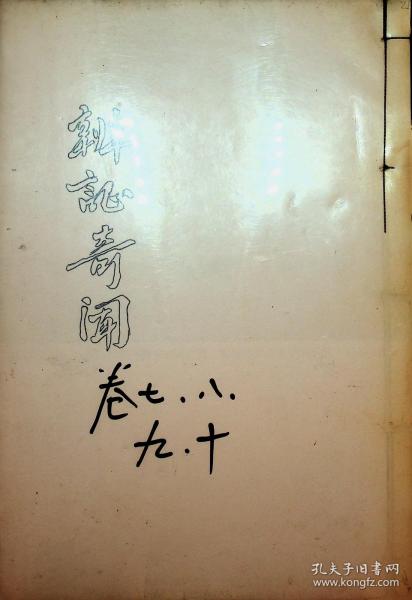 辨証奇闻
卷七.八.
九.十
孔夫子旧书网
www.kongfz.com